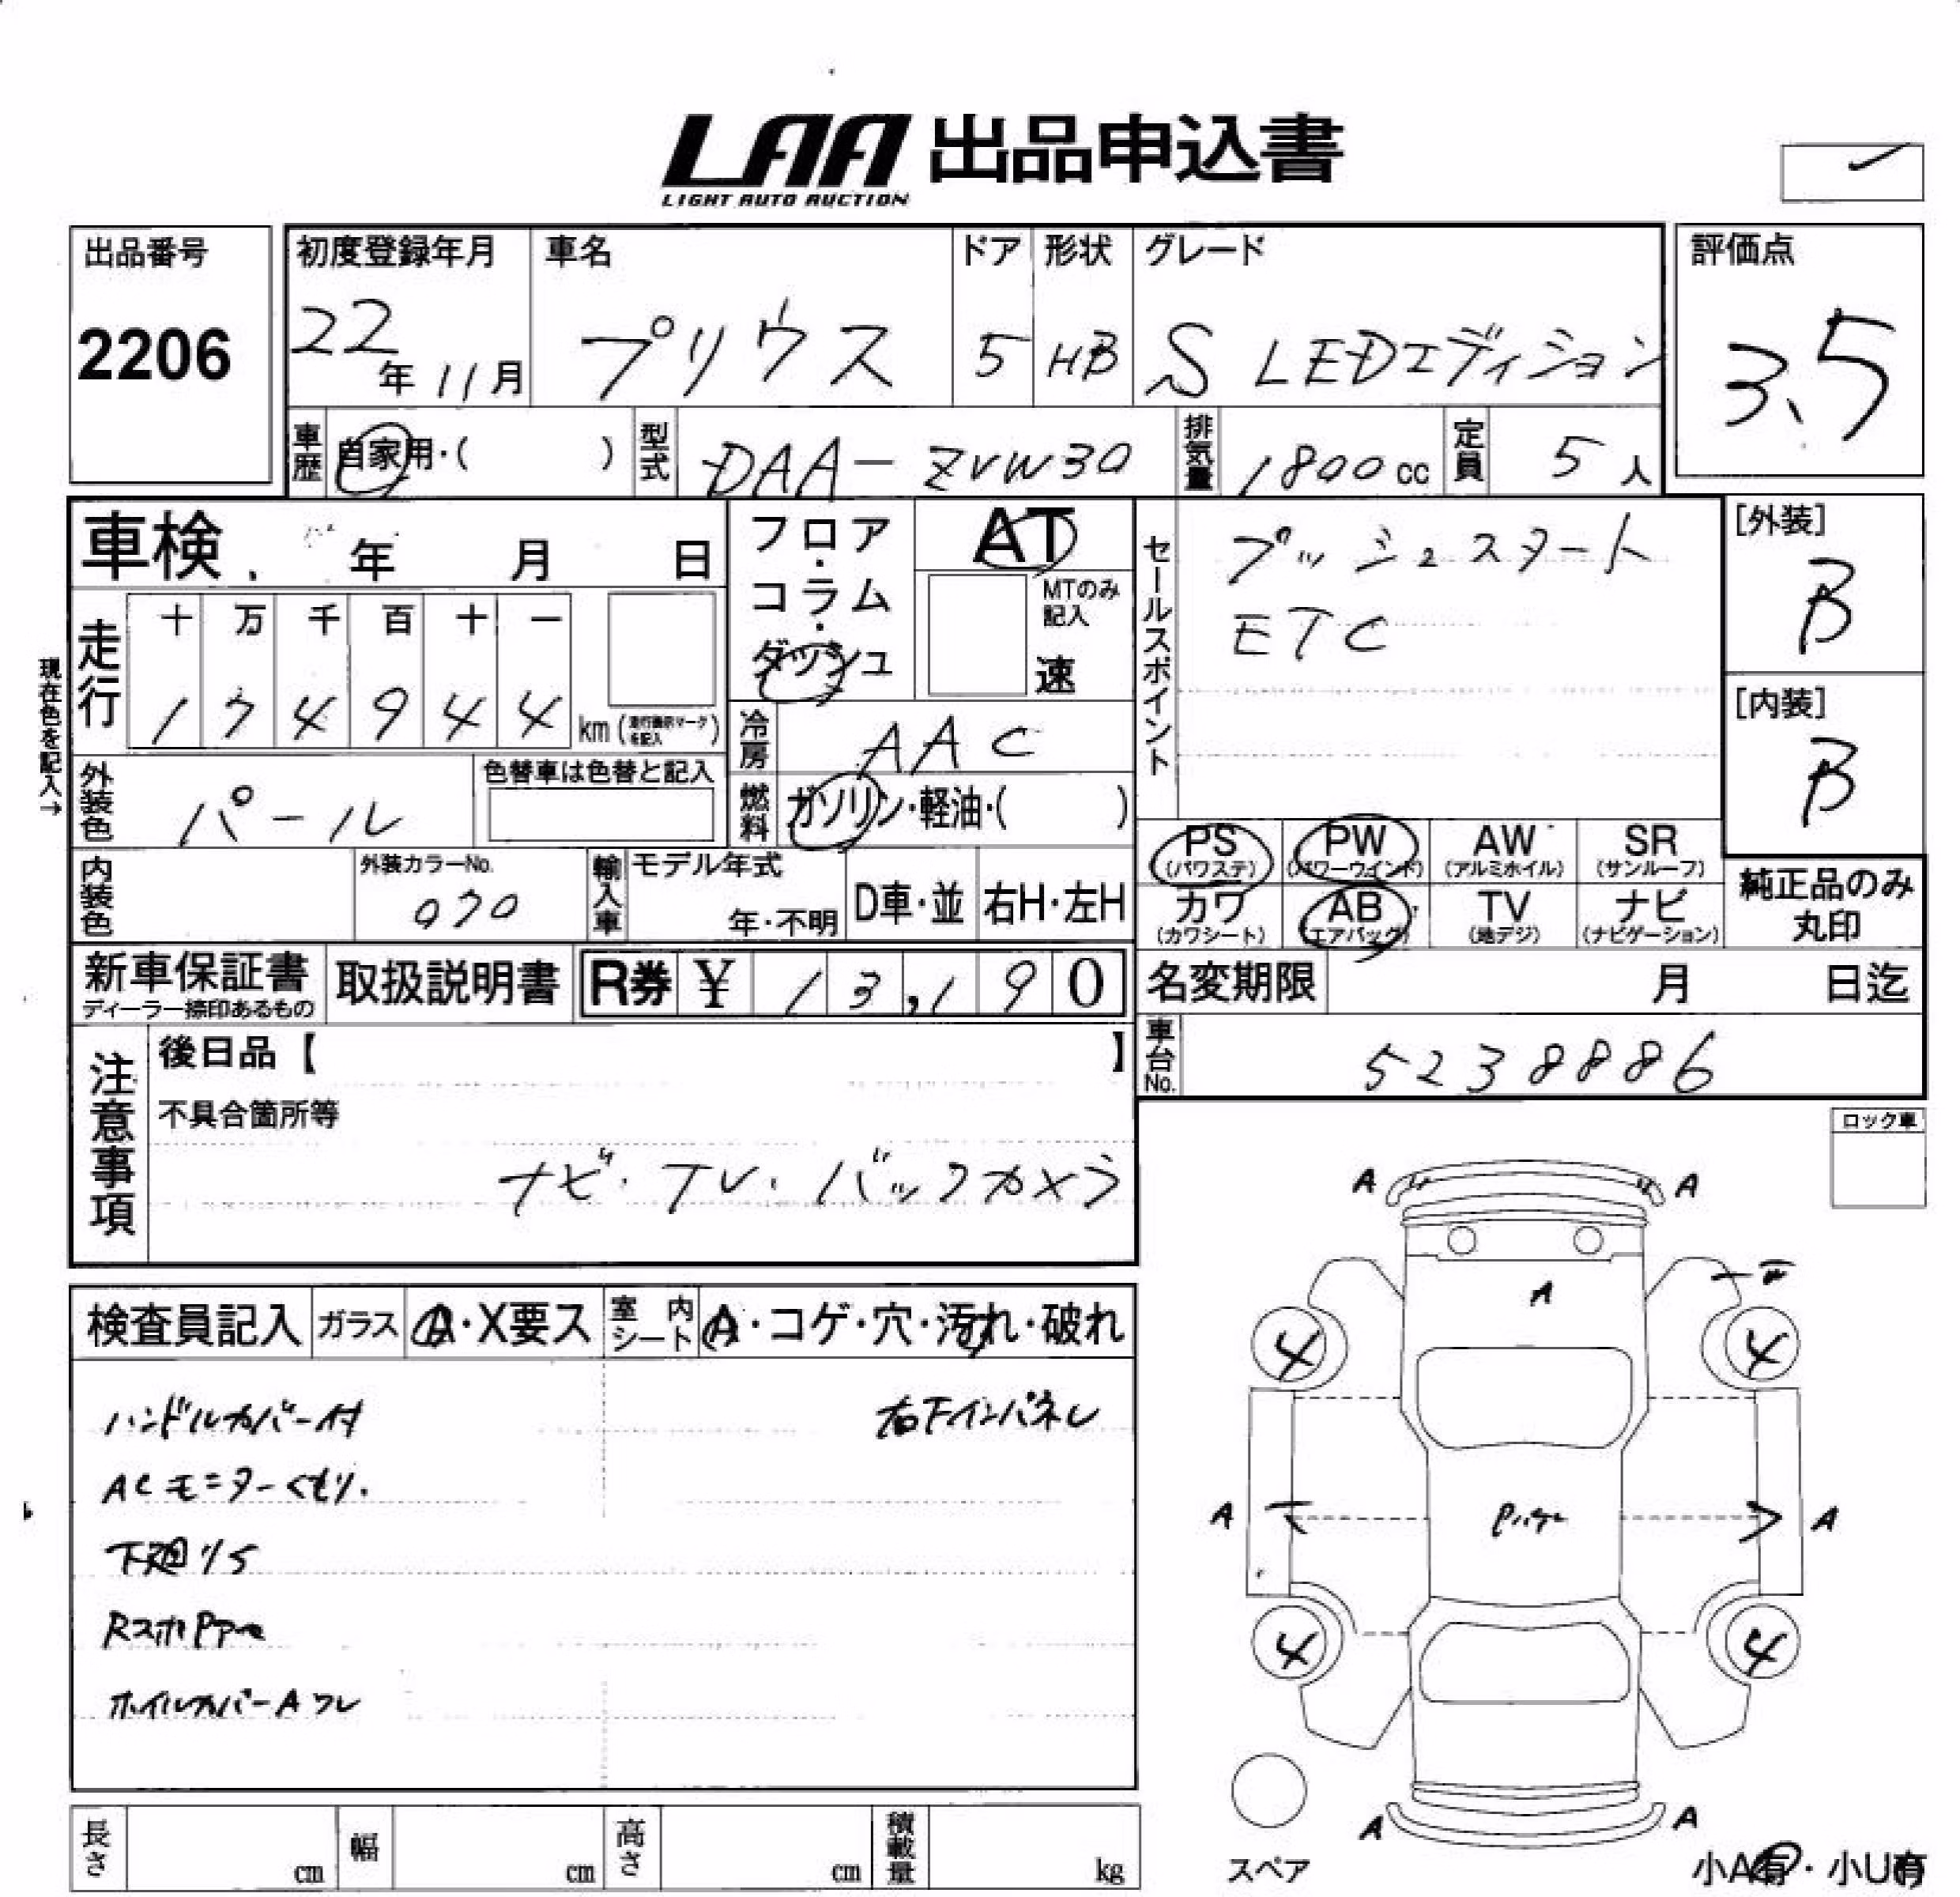 LAA 出品申込書
LIGHT AUTO AUCTION
出品番号
2206
初度登録年月
22年11月
車名
プリウス
ドア
5
形状
HB
グレード
S LEDエディション
評価点
3.5
車歴
自家用・( )
型式
DAA-ZVW30
排気量
1800cc
定員
5人
車検 年 月 日
フロア・コラム・ダッシュ
AT
MTのみ記入
速
セールスポイント
プッシュスタート
ETC
[外装]
B
[内装]
B
現在色を記入→
走行
十 万 千 百 十 一
1 7 4 9 4 4 km (走行表示マークを記入)
冷房
AAC
外装色
パール
色替車は色替と記入
燃料
ガソリン・軽油・( )
PS (パワステ)
PW (パワーウインド)
AW (アルミホイル)
SR (サンルーフ)
カワ (カワシート)
AB (エアバッグ)
TV (地デジ)
ナビ (ナビゲーション)
純正品のみ丸印
内装色
外装カラーNo.
070
輸入車
モデル年式
年・不明
D車・並
右H・左H
新車保証書
ディーラー捺印あるもの
取扱説明書
R券 ¥ 13,190
名変期限 月 日迄
車台No.
5238886
注意事項
後日品【 】
不具合箇所等
ナビ・TV・バックカメラ
ロック車
検査員記入
ガラス
A・X要ス
室内シート
A・コゲ・穴・汚れ・破れ
ハンドルカバー付
右下インパネレ
ACモニターくもり.
下廻りS
ホイルカバーAワレ
A A
A
4 4
A A
4 4
A A
スペア
小A有・小U有
長さ cm
幅 cm
高さ cm
積載量 kg